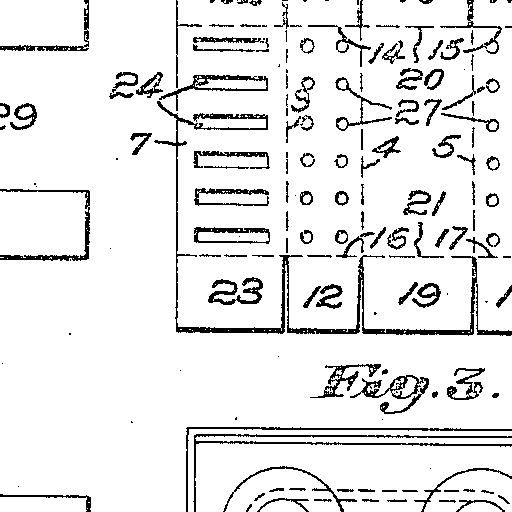 14 15
24 20
3
29 27
7 4 5
21
16 17
23 12 19
Fig. 3.